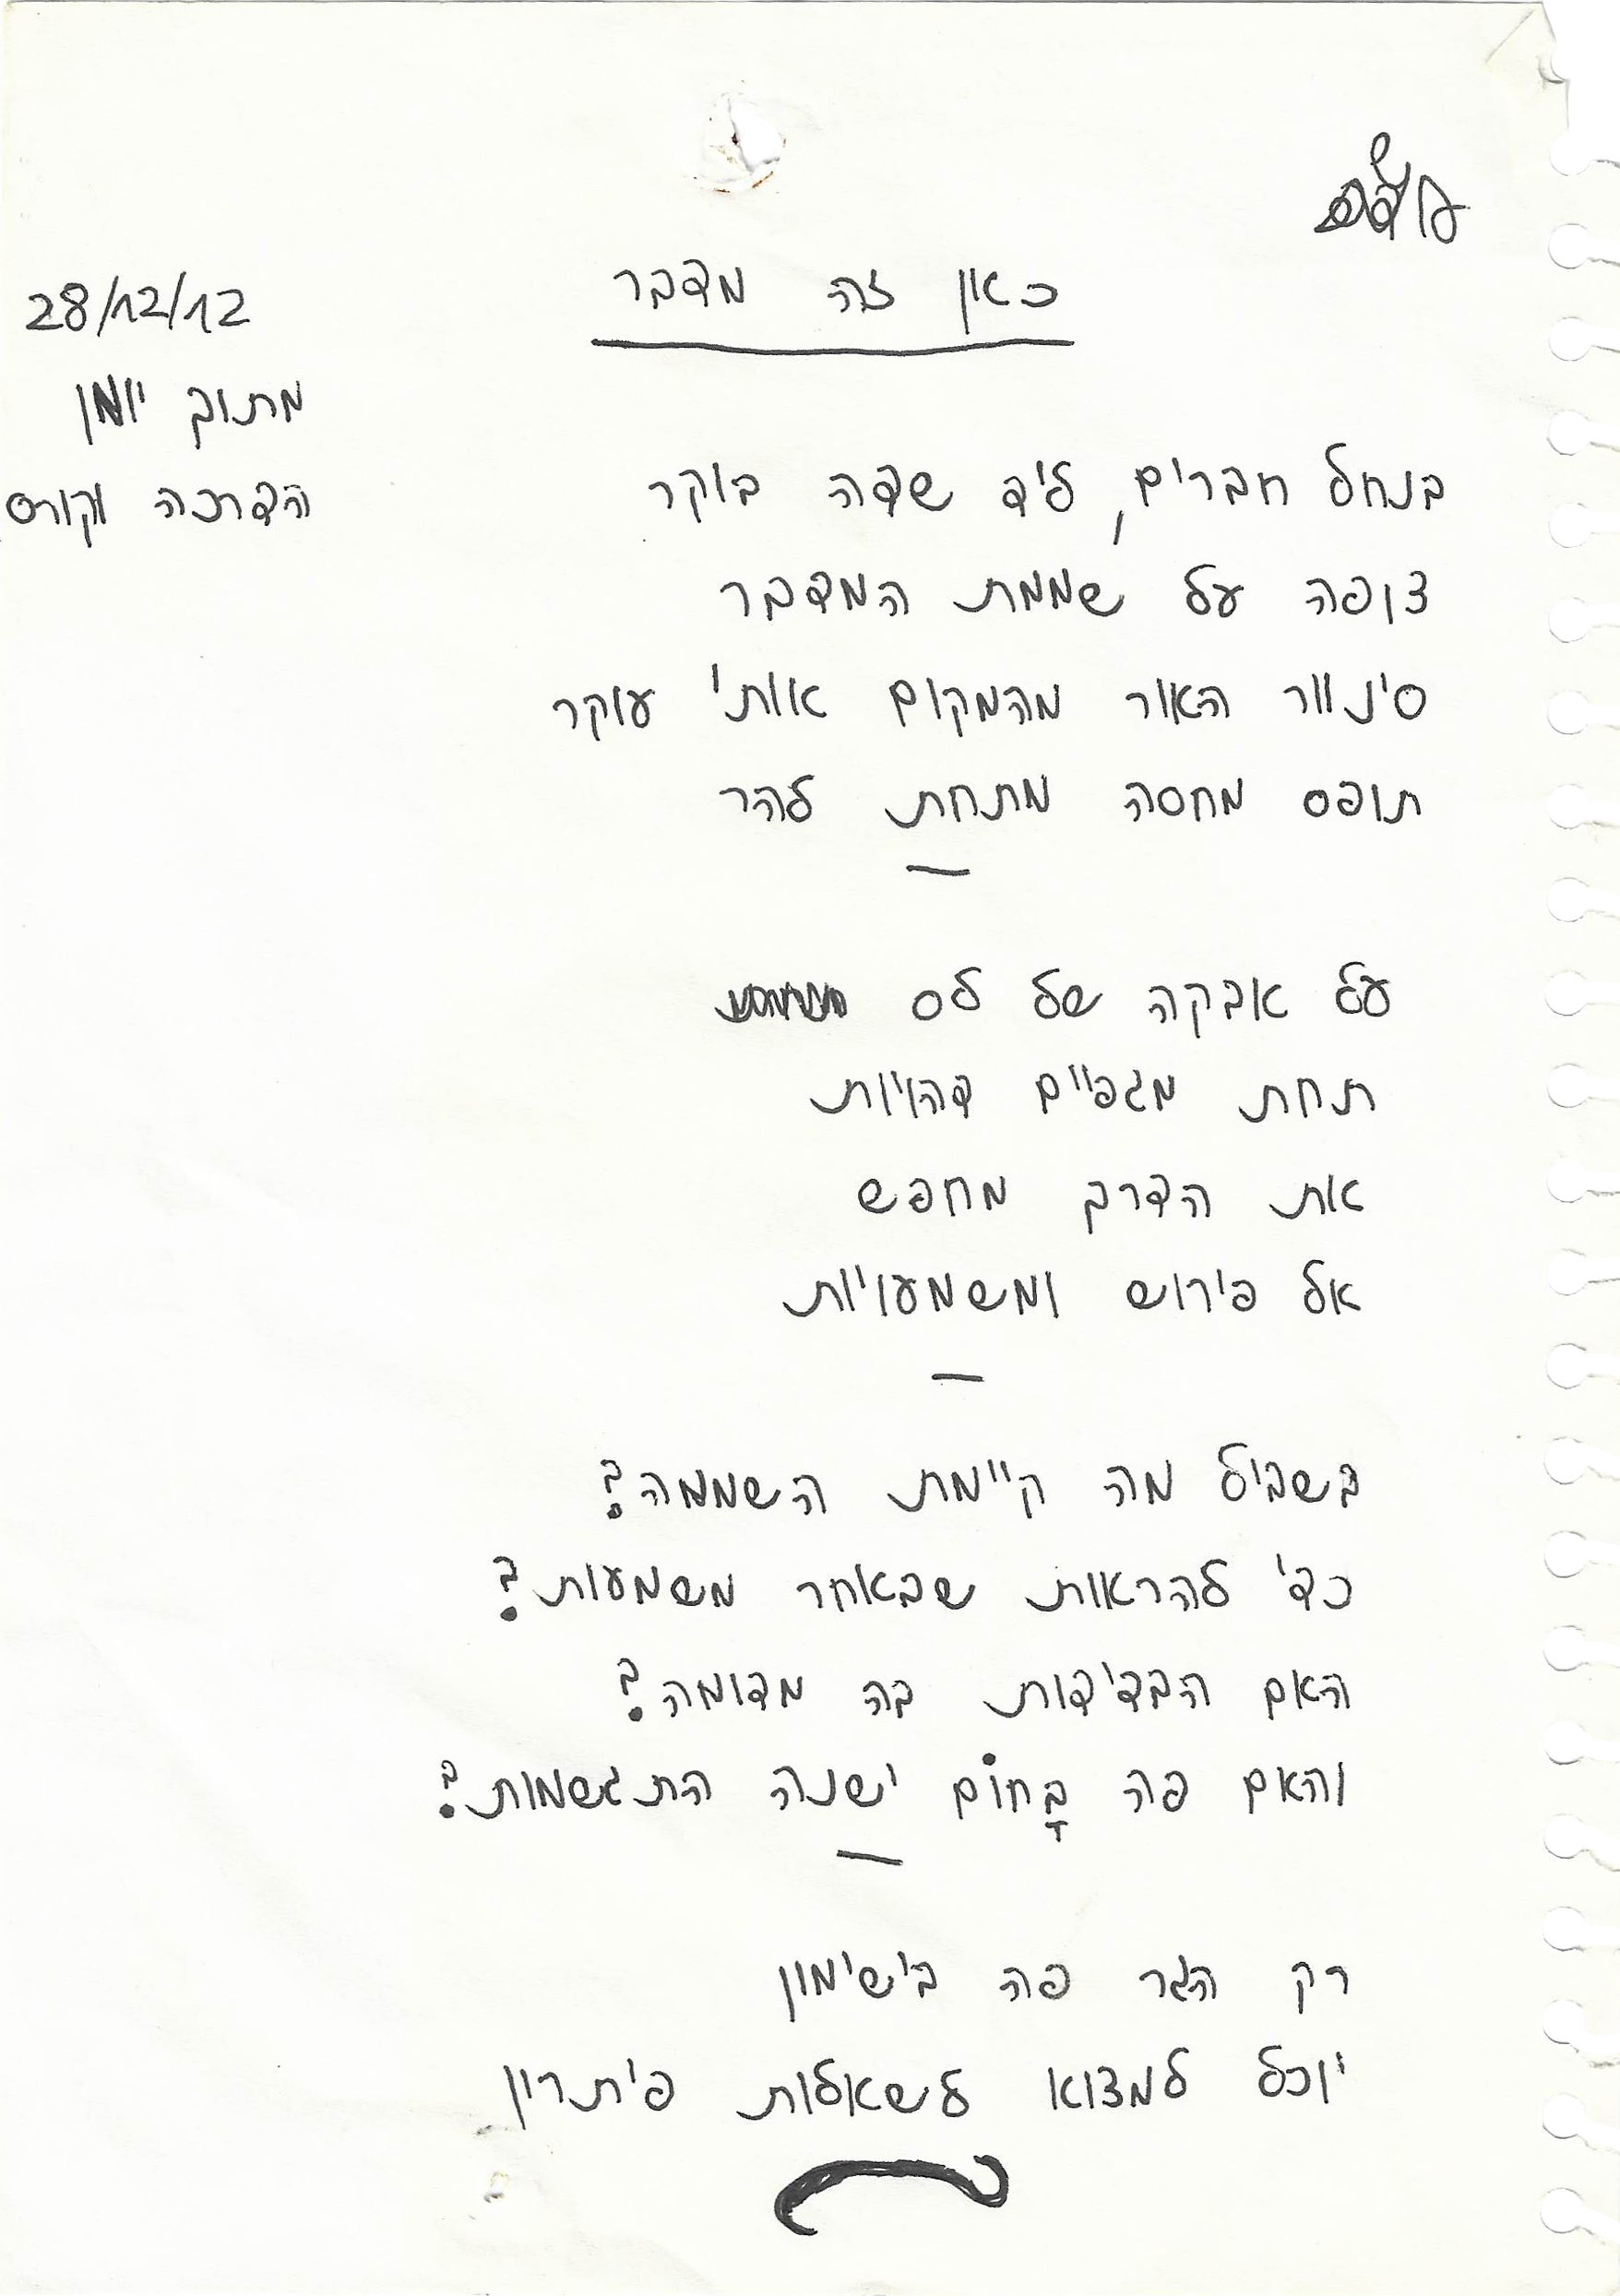 כאן זה מדבר
28/12/12
מתוך יומן
הדרכה וקורס
בנחל חברים, ליד שדה בוקר
צופה על שממת המדבר
סינוור האור מהמקום אותי עוקר
תופס מחסה מתחת להר
—
על אבקה של לס
תחת מגפיים דהויות
את הדרך מחפש
אל פירוש ומשמעויות
—
בשביל מה קיימת השממה?
כדי להראות שבאחר משמעות?
האם הבדידות בה מדומה?
והאם פה בָּחוֹם ישנה התגשמות?
—
רק הגר פה בישימון
יוכל למצוא לשאלות פיתרון